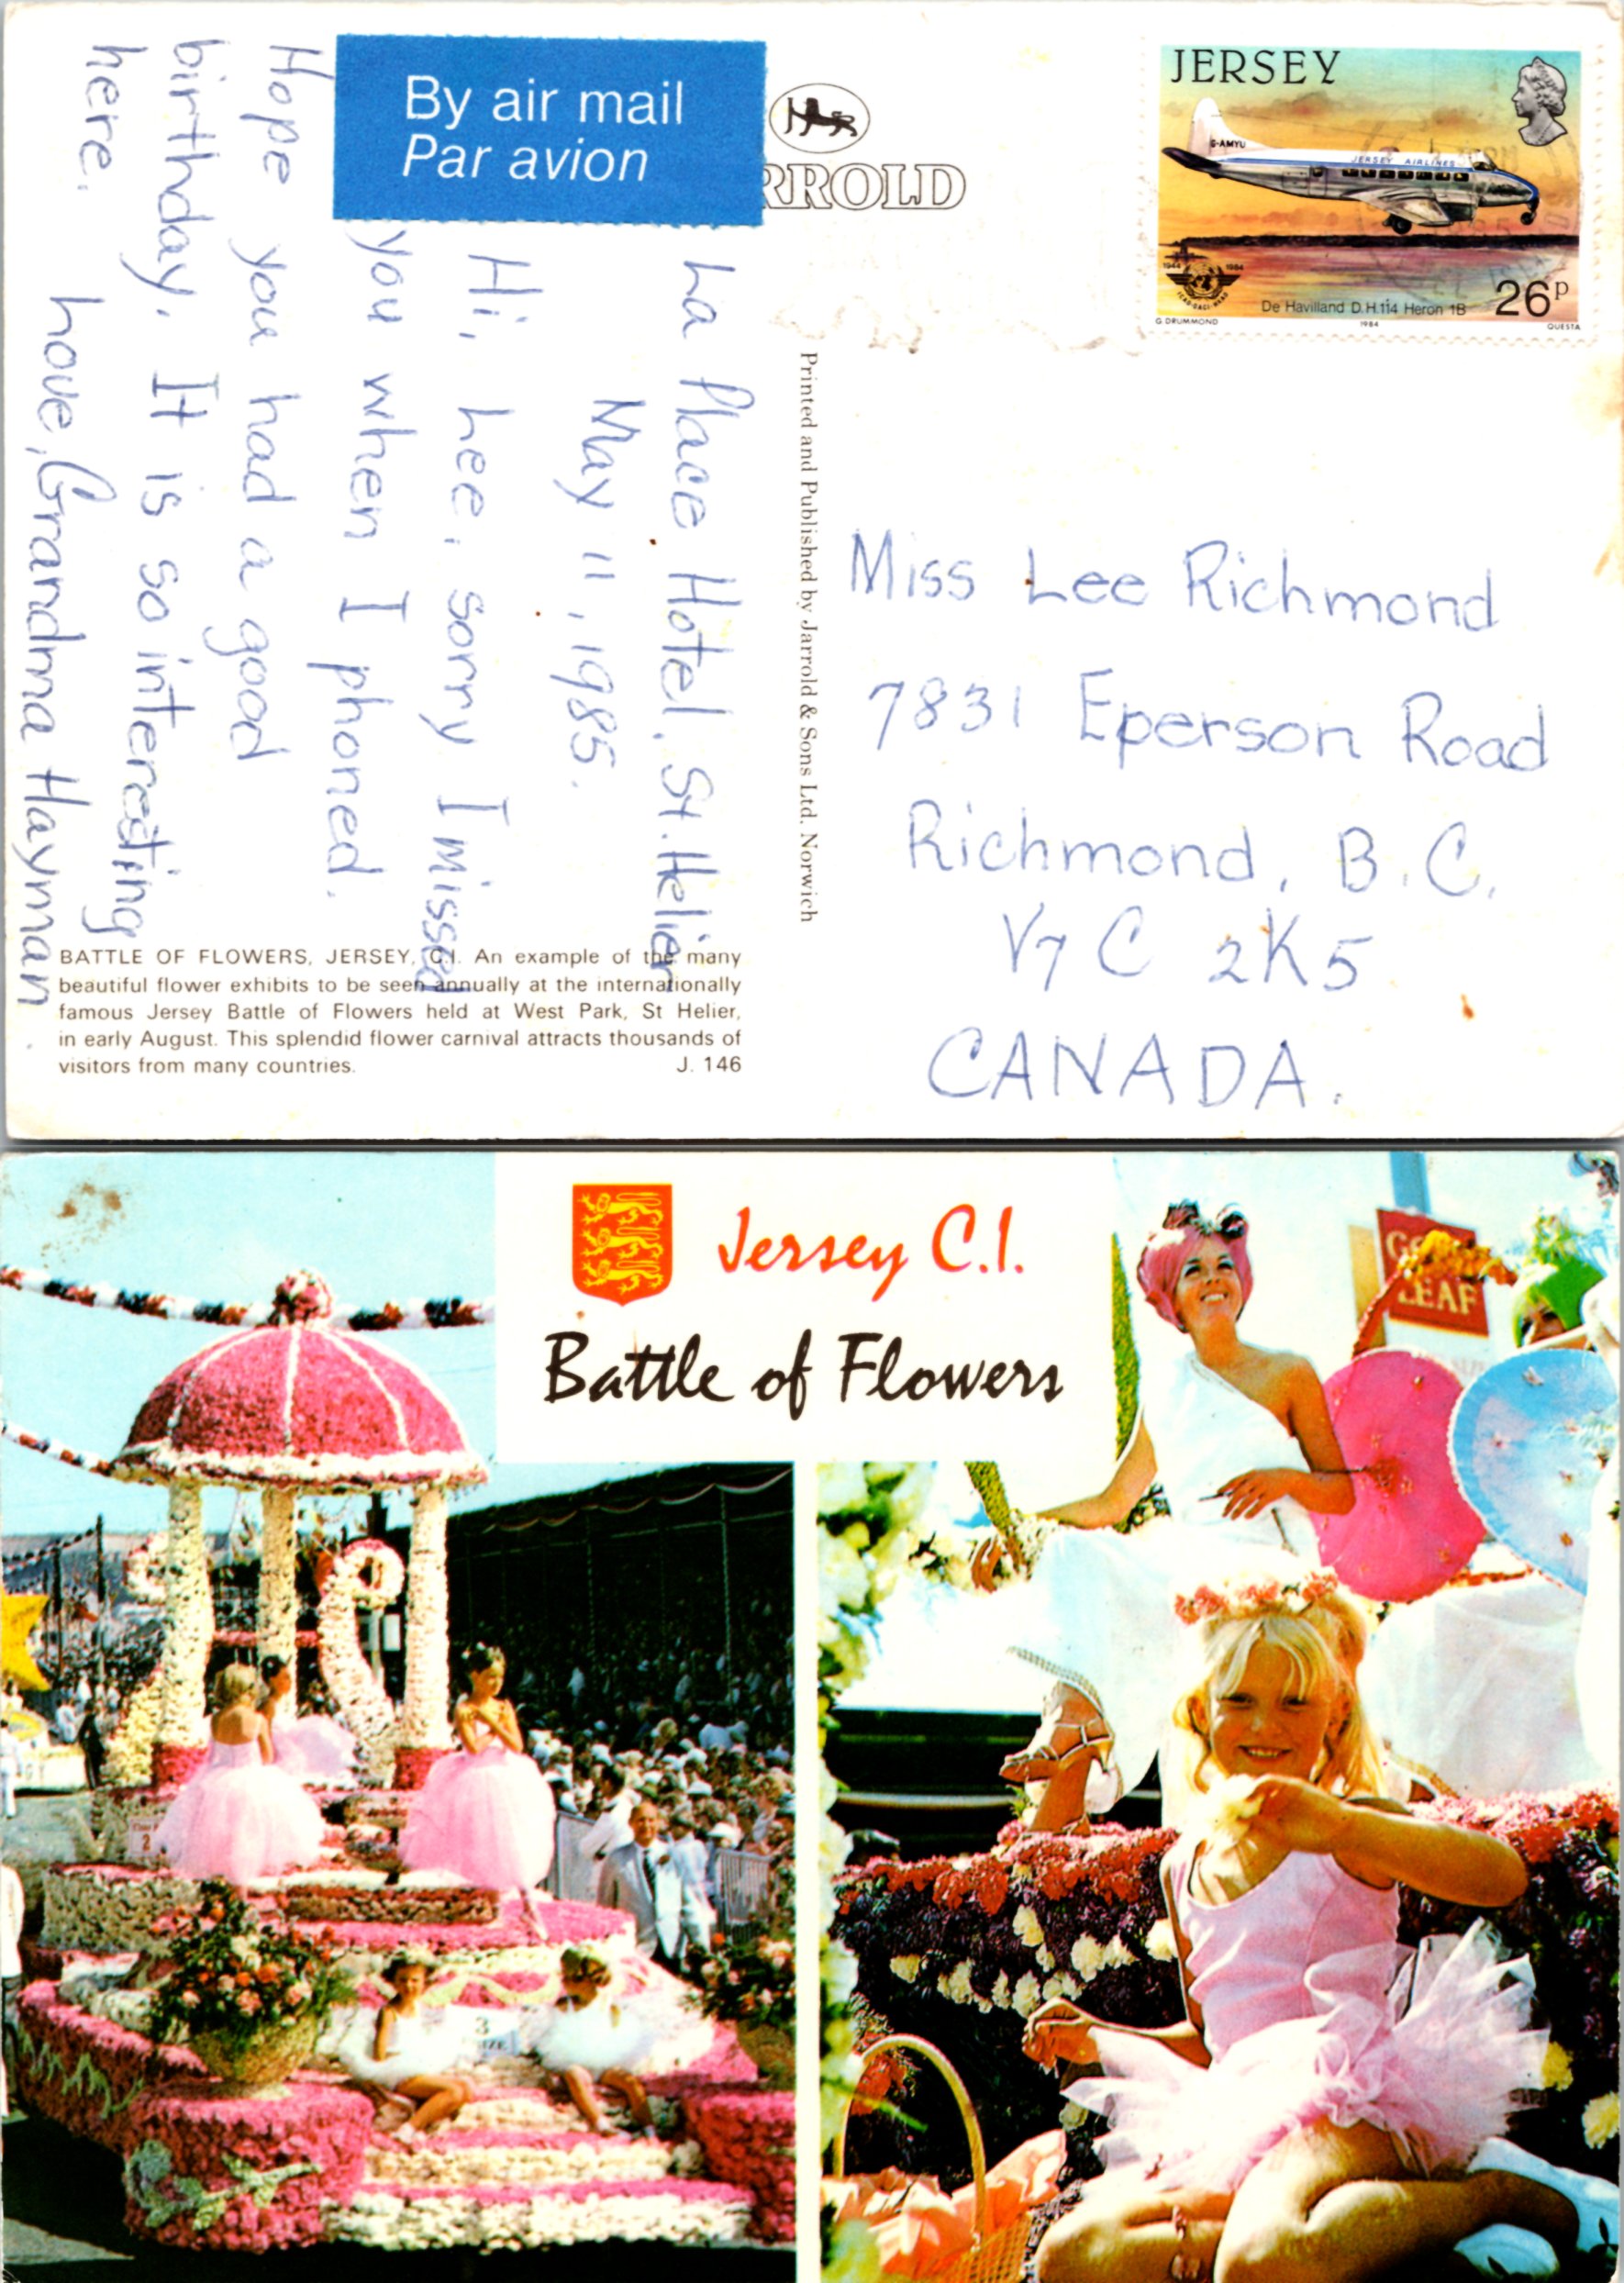 La Place Hotel, St. Helier
May 11, 1985.
Hi, Lee, sorry I missed
you when I phoned.
Hope you had a good
birthday. It is so interesting
here.
Love, Grandma Hayman
By air mail
Par avion
RROLD
JERSEY
G-AMYU
JERSEY AIRLINES
1944 1984
De Havilland D.H.114 Heron 1B
26p
G DRUMMOND 1984 QUESTA
Printed and Published by Jarrold & Sons Ltd. Norwich
Miss Lee Richmond
7831 Eperson Road
Richmond, B.C.
V7C 2K5
CANADA.
BATTLE OF FLOWERS, JERSEY, C.I. An example of the many
beautiful flower exhibits to be seen annually at the internationally
famous Jersey Battle of Flowers held at West Park, St Helier,
in early August. This splendid flower carnival attracts thousands of
visitors from many countries. J. 146
Jersey C.I.
Battle of Flowers
LEAF
2
3